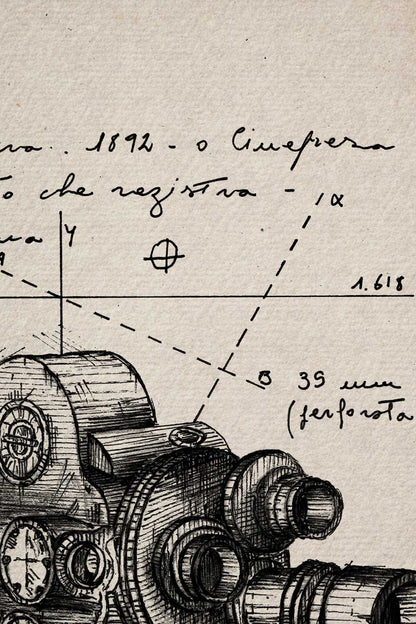 1892 - o Cinepresa
che registra -
α
Y
1.618
B 35 mm
(perforata